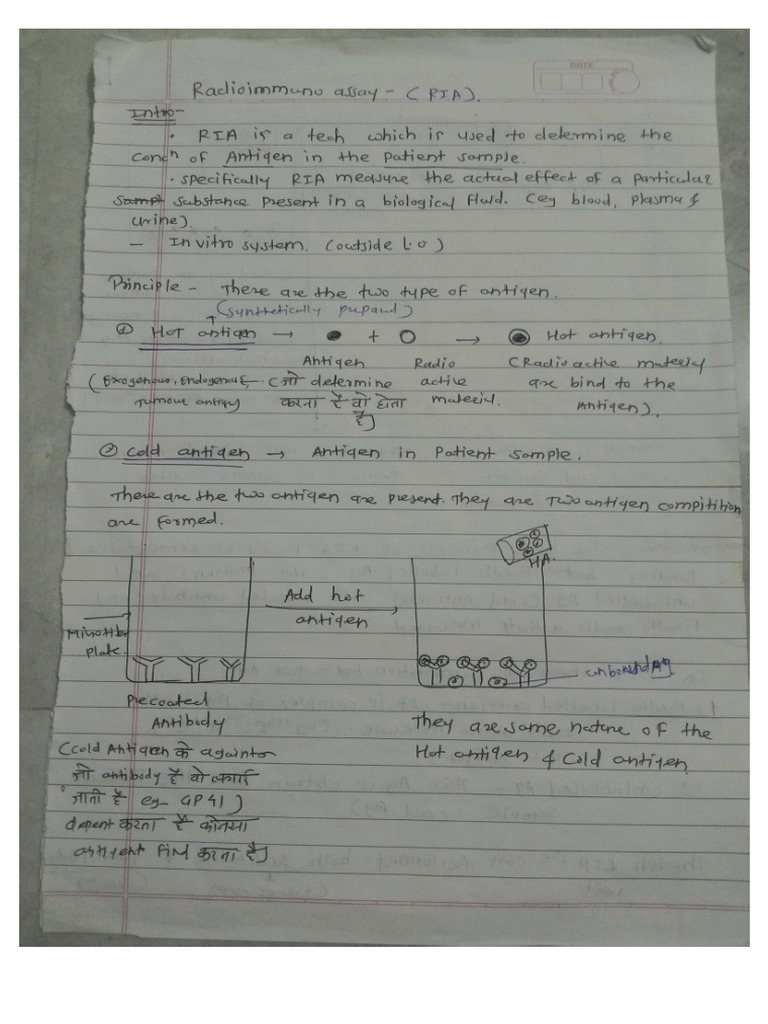 DATE
Radioimmuno assay - (RIA).
Intro-
• RIA is a tech which is used to determine the
concn of Antigen in the patient sample.
• specifically RIA measure the actual effect of a particular
sampl substance present in a biological fluid. (eg blood, plasma &
urine).
- In vitro system. (outside L.O)
Principle - There are the two type of antigen.
(synthetically prepared)
① Hot antigen → + → Hot antigen.
Antigen Radio (Radioactive material
(Exogenous, Endogenous (जो determine active are bind to the
tumour antigen करना है वो होता material. Antigen).
है]
② Cold antigen → Antigen in Patient sample.
There are the two antigen are present. They are Two antigen compitition
are formed.
HA.
Add hot
antigen
Microtiter
plate.
unbound Ag
Precoated
Antibody They are same nature of the
(cold Antigen के against Hot antigen & Cold antigen
जो antibody है वो लगाई
जाती है eg- GP41)
depent करना है कोनसा
find करना है]